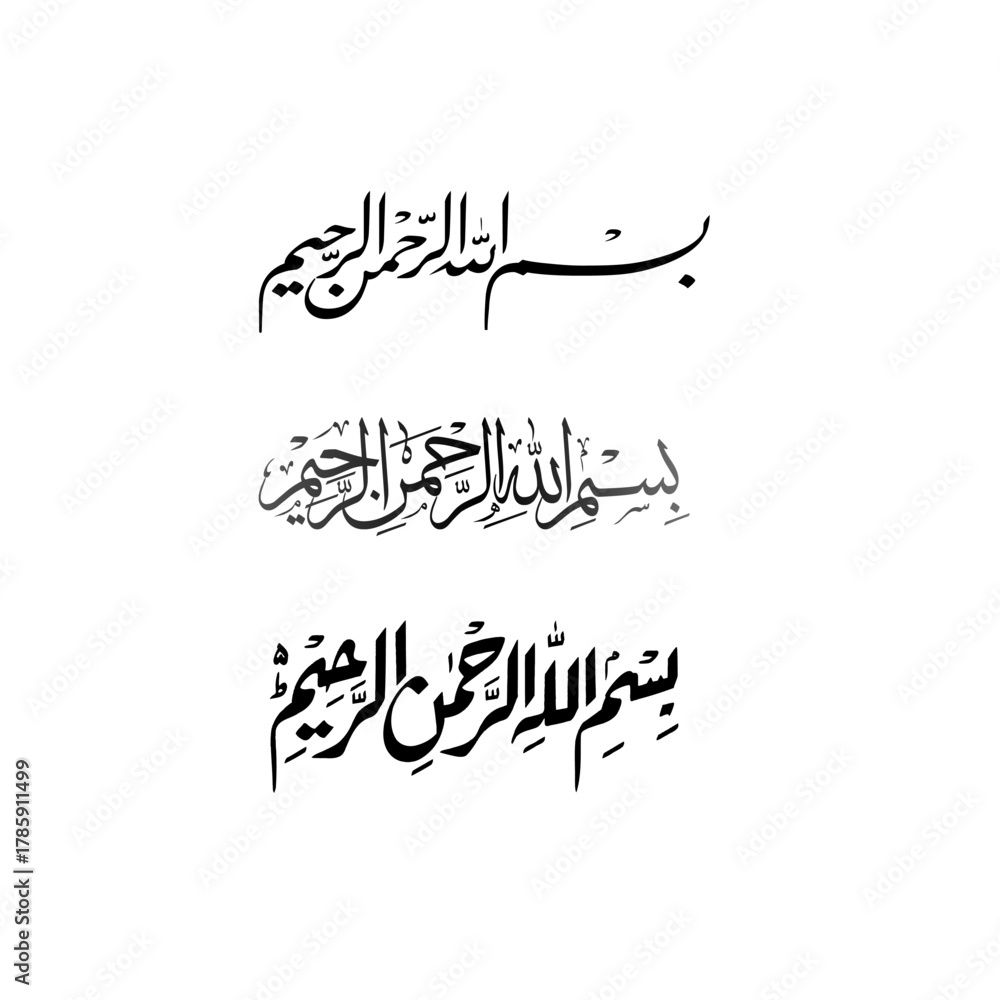 بسم الله الرحمن الرحيم
بِسْمِ اللهِ الرَّحْمَنِ الرَّحِيْمِ
بِسْمِ اللّٰهِ الرَّحْمٰنِ الرَّحِيْمِ
Adobe Stock | #1785911499